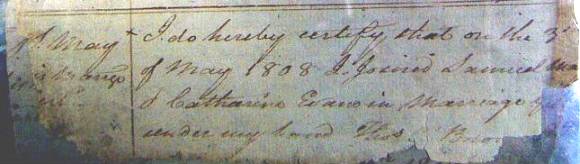 May I do hereby certify that on the 3d
of May 1808 I Joined Samuel
& Catharine Evans in Marriage
under my hand Thos